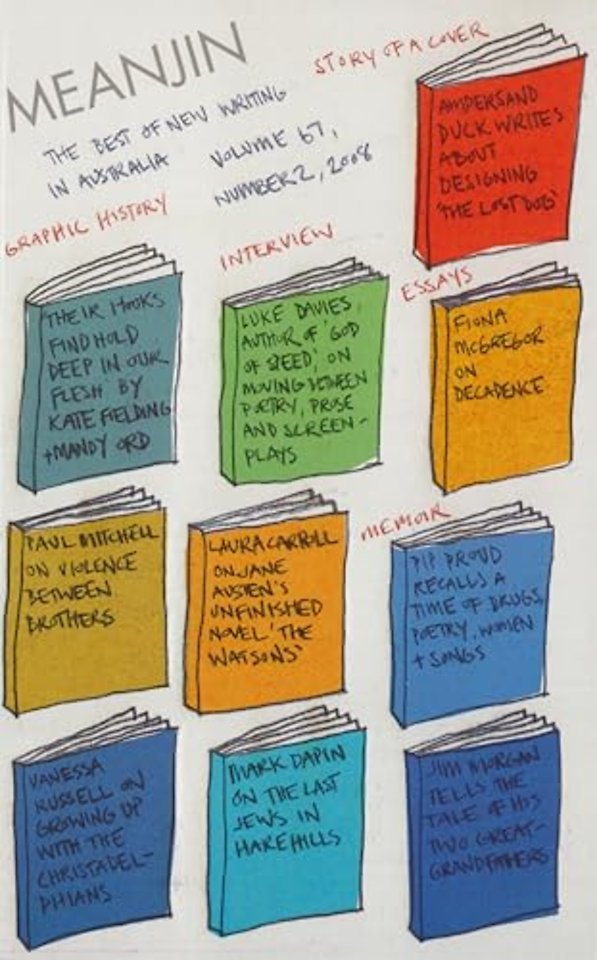 MEANJIN
THE BEST OF NEW WRITING
IN AUSTRALIA
VOLUME 67,
NUMBER 2, 2008
STORY OF A COVER
AMPERSAND
DUCK WRITES
ABOUT
DESIGNING
'THE LOST DOG'
GRAPHIC HISTORY
THEIR HOOKS
FIND HOLD
DEEP IN OUR
FLESH BY
KATE FIELDING
+MANDY ORD
INTERVIEW
LUKE DAVIES,
AUTHOR OF 'GOD
OF SPEED', ON
MOVING BETWEEN
POETRY, PROSE
AND SCREEN-
PLAYS
ESSAYS
FIONA
MCGREGOR
ON
DECADENCE
PAUL MITCHELL
ON VIOLENCE
BETWEEN
BROTHERS
LAURA CARROLL
ON JANE
AUSTEN'S
UNFINISHED
NOVEL 'THE
WATSONS'
MEMOIR
PIP PROUD
RECALLS A
TIME OF DRUGS,
POETRY, WOMEN
+ SONGS
VANESSA
RUSSELL ON
GROWING UP
WITH THE
CHRISTADEL-
PHIANS
MARK DAPIN
ON THE LAST
JEWS IN
HAREHILLS
JIM MORGAN
TELLS THE
TALE OF HIS
TWO GREAT-
GRANDFATHERS